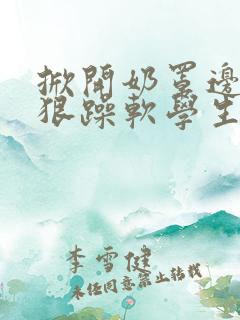 掀開奶罩邊
狠躁軟學生
李雪健
未经同意禁止转载